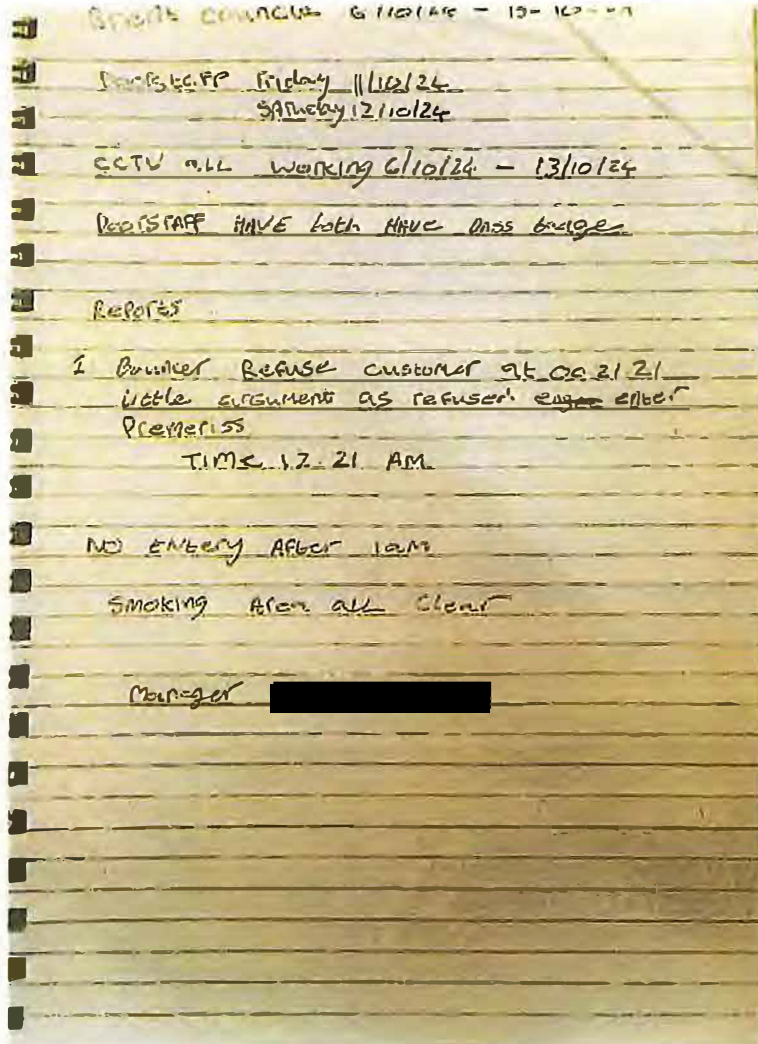 6/10/24 -
Doorstaff Friday 11/10/24
SATurday 12/10/24
CCTV ALL Working 6/10/24 - 13/10/24
DoorSTAFF HAVE both HAVE PASS badge
Reports
1 Bouncer Refuse customer at 00 21 21
little argument as refuser enter
Premeriss
TIME 12.21 AM
NO ENtery AFter 1am
Smoking Area all Clear
Manager